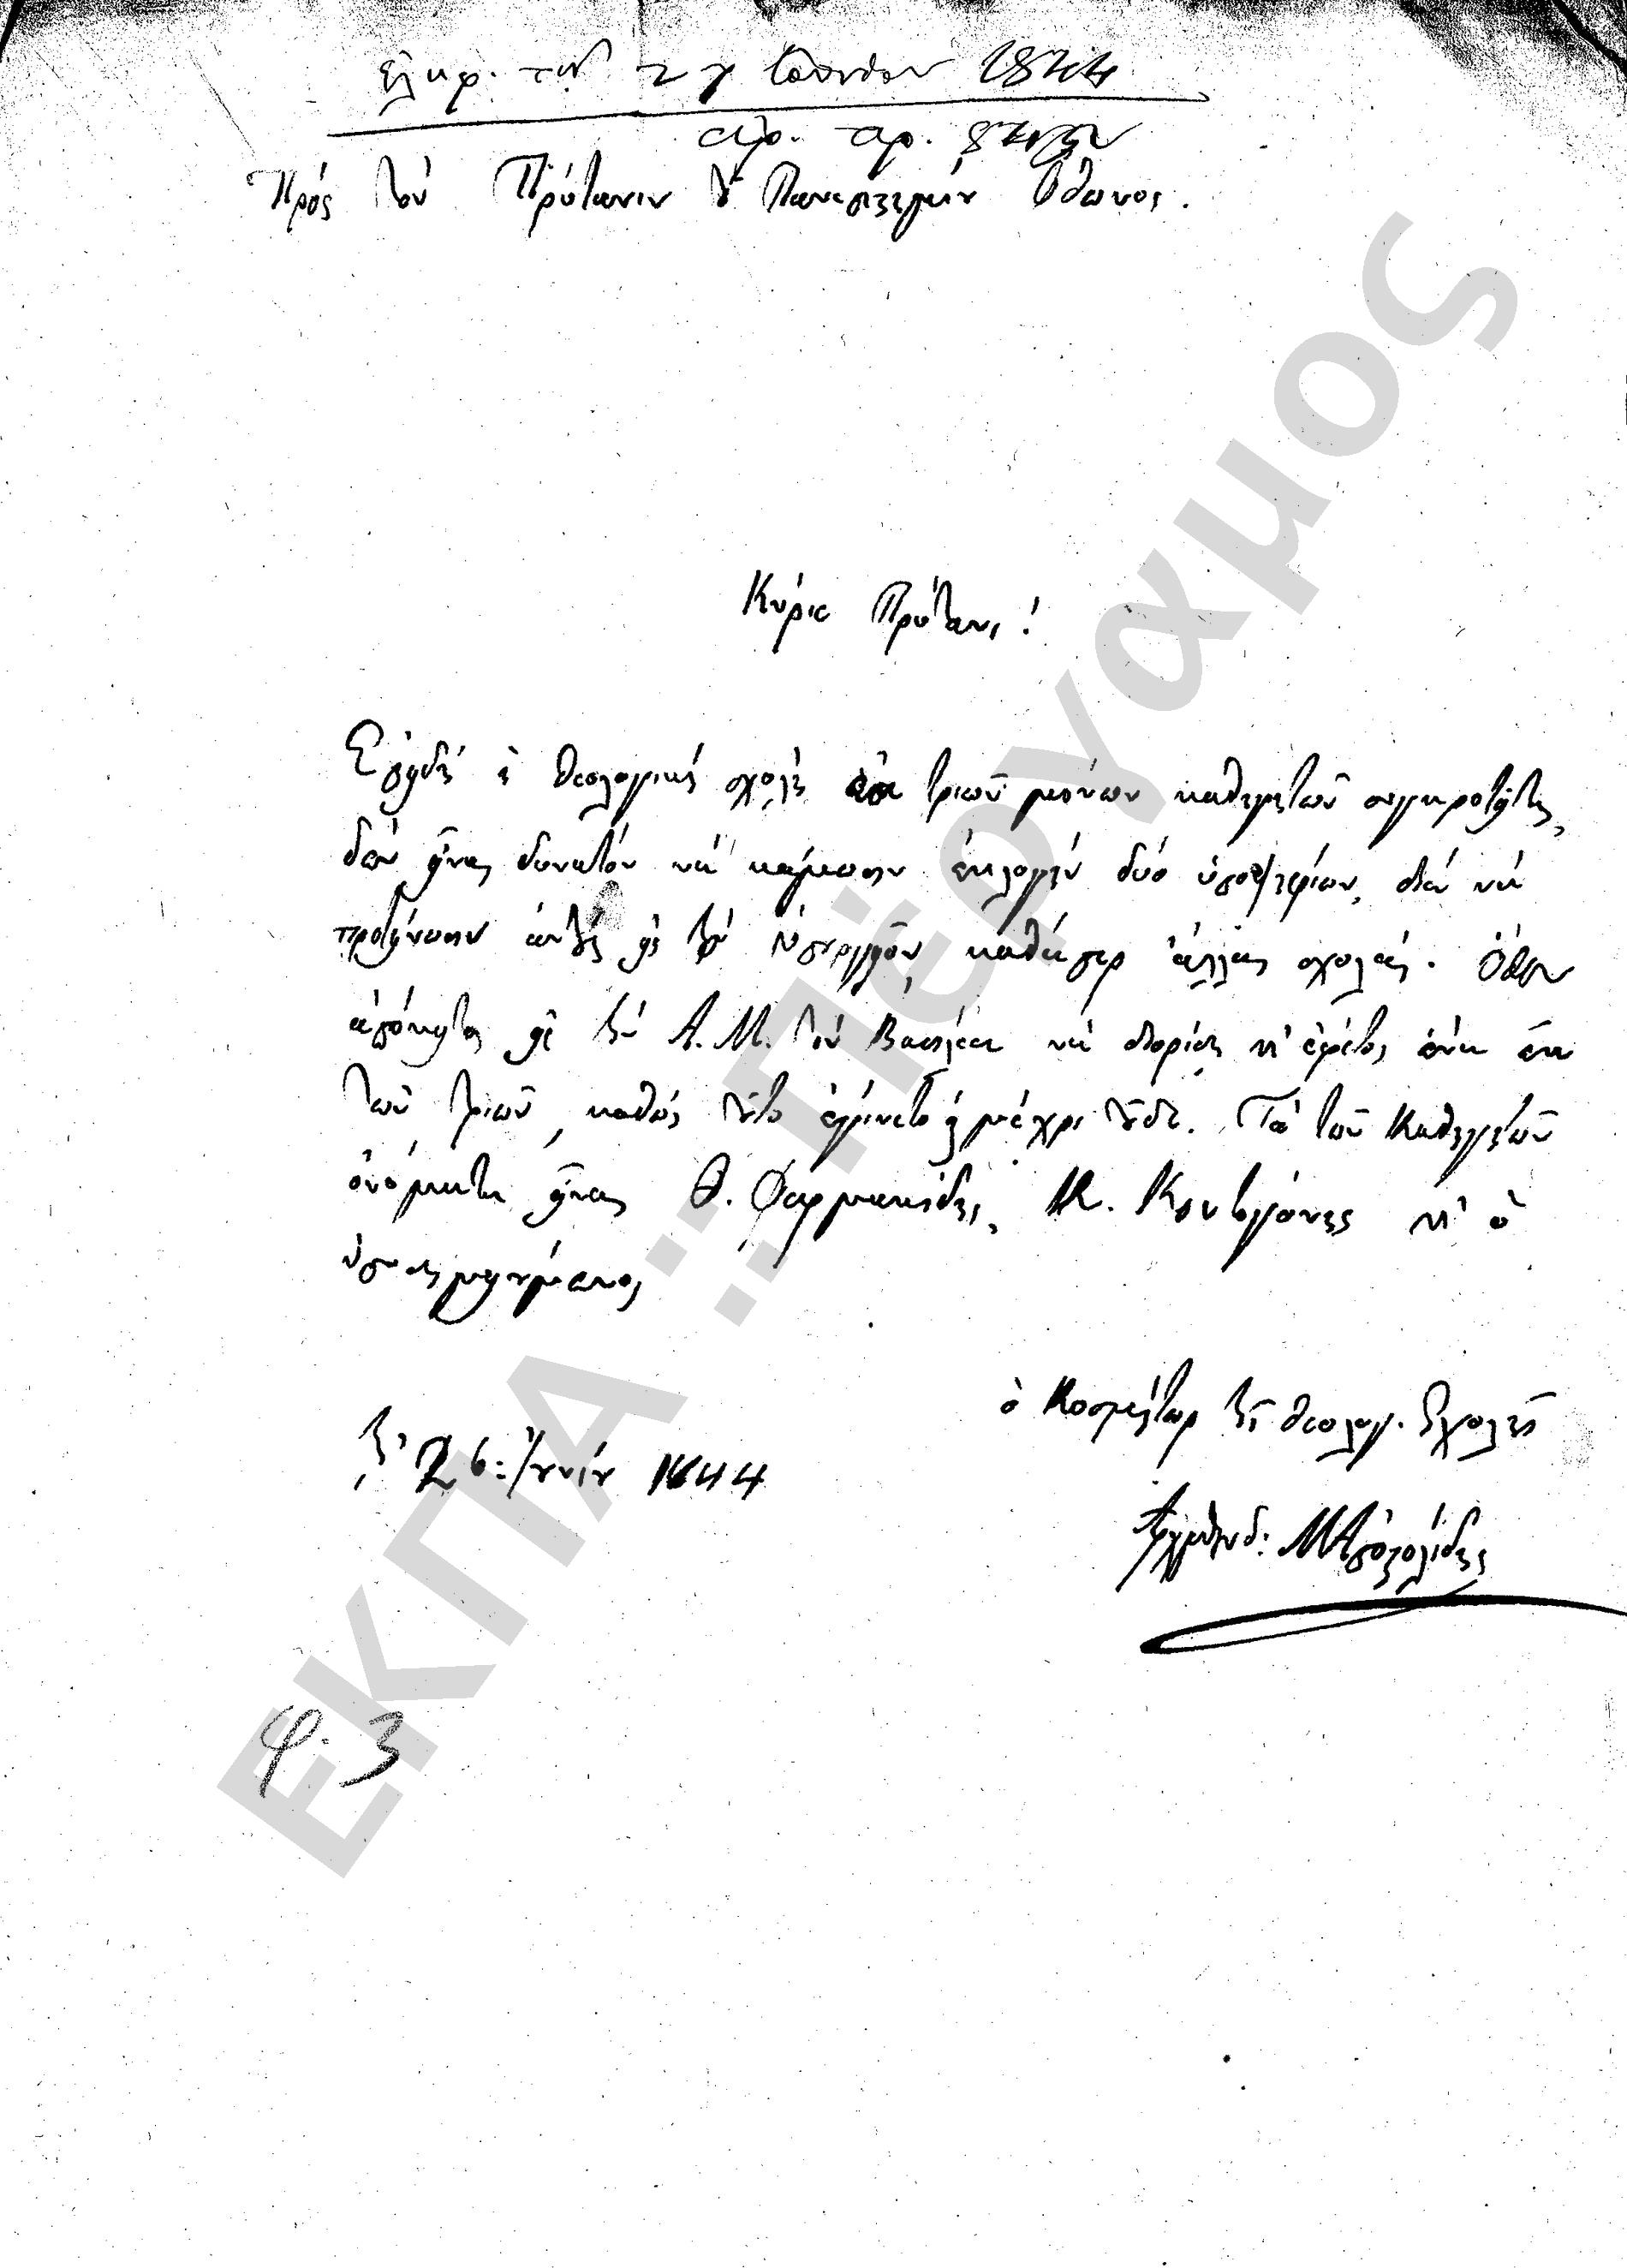 ἐλήφ. τὴν 27 Ἰουνίου 1844
ἀρ. πρ.
Πρὸς τὸν Πρύτανιν τοῦ Πανεπιστημίου Ὄθωνος.
Κύριε Πρύτανι!
Ἐπειδὴ ἡ θεολογικὴ σχολὴ ἐκ τριῶν μόνων καθηγητῶν συγκροτεῖται,
δὲν εἶναι δυνατὸν νὰ κάμωσιν ἐκλογὴν δύο ὑποψηφίων, διὰ νὰ
προτείνωσιν αὐτοὺς εἰς τὸ Ὑπουργεῖον, καθάπερ αἱ ἄλλαι σχολαί. Ὅθεν
ἀπόκειται εἰς τὴν Α. Μ. τὸν Βασιλέα νὰ διορίσῃ κ' ἐφέτος ἕνα ἐκ
τῶν τριῶν, καθὼς τοῦτο ἐγίνετο καὶ μέχρι τοῦδε. Τὰ τῶν Καθηγητῶν
ὀνόματα εἶναι Θ. Φαρμακίδης, Κ. Κοντογόνης κ' ὁ
ὑποσημειούμενος
ὁ Κοσμήτωρ τῆς θεολογ. Σχολῆς
τῇ 26: Ἰουνίου 1844
Ἀρχιμανδ: Μ Ἀποστολίδης
φ. 3
ΕΚΠΑ ΄΄Πέργαμος